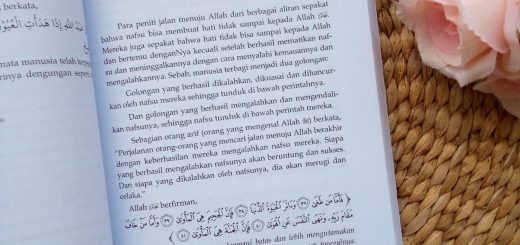 berkata,
اللهِ إِذَا هَدَأَتِ الْعُيُوْنُ
mata manusia telah
rinya dengungan
Para peniti jalan menuju Allah dari berbagai aliran sepakat
bahwa nafsu bisa membuat hati tidak sampai kepada Allah
Mereka juga sepakat bahwa hati tidak bisa sampai kepada Allah
dan bertemu denganNya kecuali setelah berhasil mematikan naf-
su dan meninggalkannya dengan cara menyalahi kemauannya dan
mengalahkannya. Sebab, manusia terbagi menjadi dua golongan:
Golongan yang berhasil dikalahkan, dikuasai dan dihancur-
kan oleh nafsu mereka sehingga tunduk di bawah perintahnya.
Dan golongan yang berhasil mengalahkan dan mengendali-
kan nafsunya, sehingga nafsu tunduk di bawah perintah mereka.
Sebagian orang arif (orang yang mengenal Allah) berkata,
"Perjalanan orang-orang yang mencari jalan menuju Allah berakhir
dengan keberhasilan mereka mengalahkan nafsu mereka. Siapa
yang berhasil mengalahkan nafsunya akan beruntung dan sukses.
Dan siapa yang dikalahkan oleh nafsunya, dia akan merugi dan
celaka."
Allah berfirman,
فَأَمَّا مَنْ طَغَىٰ ﴿٣٧﴾ وَآثَرَ الْحَيَاةَ الدُّنْيَا ﴿٣٨﴾ فَإِنَّ الْجَحِيمَ هِيَ الْمَأْوَىٰ ﴿٣٩﴾ وَأَمَّا مَنْ خَافَ
مَقَامَ رَبِّهِ وَنَهَى النَّفْسَ عَنِ الْهَوَىٰ ﴿٤٠﴾ فَإِنَّ الْجَنَّةَ هِيَ الْمَأْوَىٰ ﴿٤١﴾
batas dan lebih mengutamakan
tinggalnya.